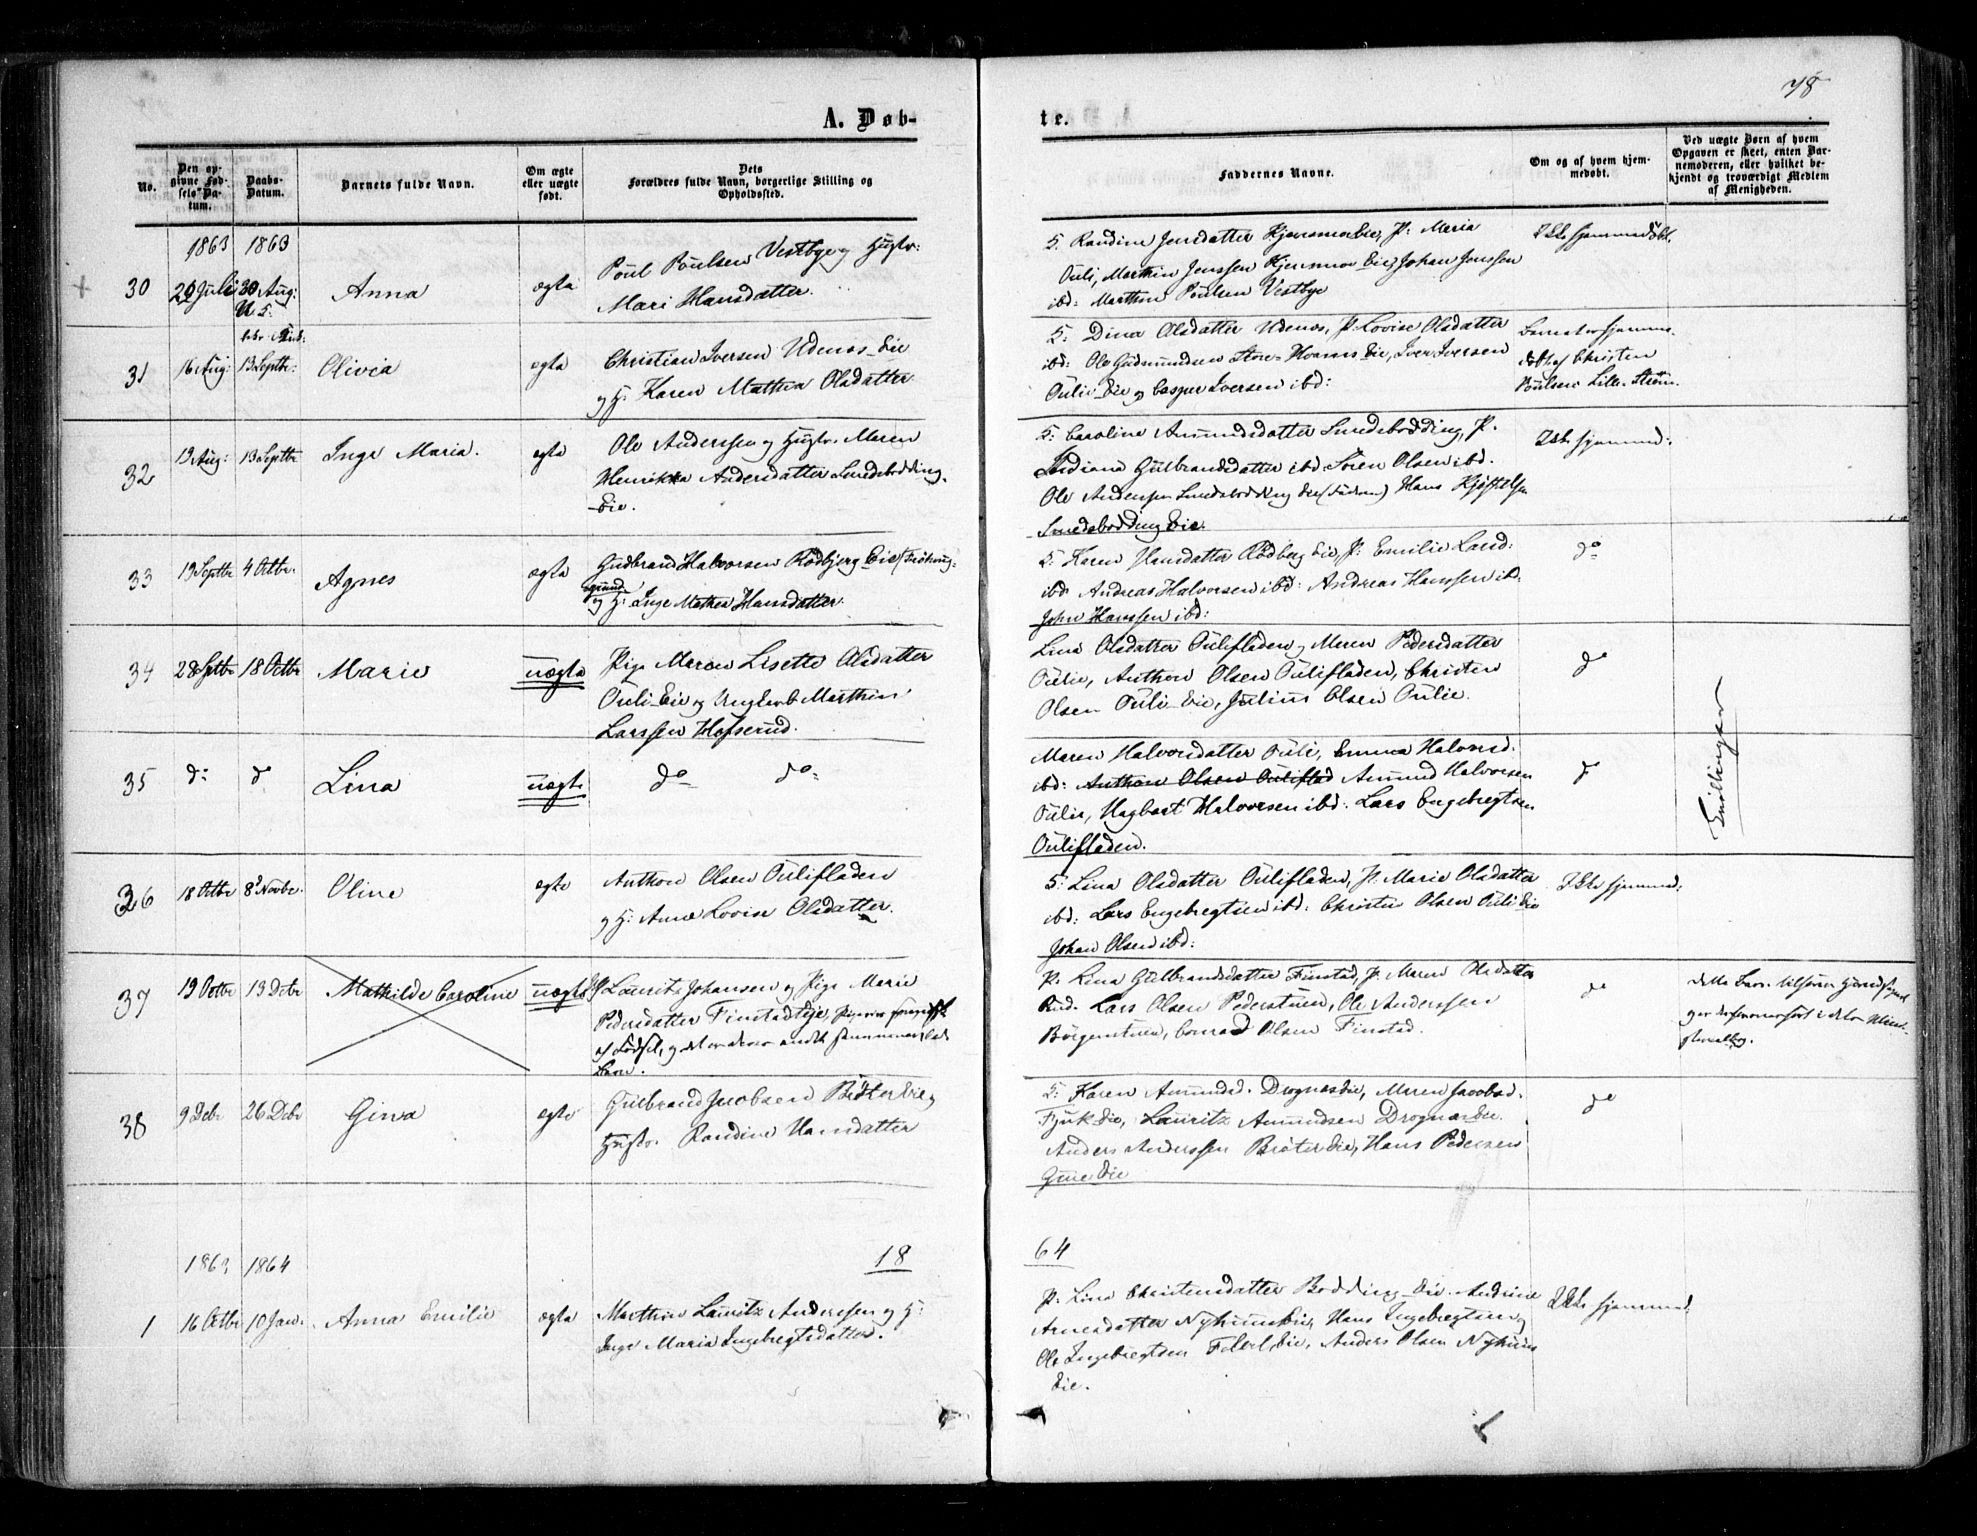 78
A. Døb-
te.
No.
Den op-
givne Fød-
sels Da-
tum.
Daabs-
Datum.
Barnets fulde Navn.
Om ægte
eller uægte
født.
Dets
Forældres fulde Navn, borgerlige Stilling og
Opholdssted.
Faddernes Navne.
Om og af hvem hjem-
medøbt.
Ved uægte Børn af hvem
Opgaven er skeet, enten Bar-
nemoderen, eller hvilket be-
kjendt og troværdigt Medlem
af Menigheden.
1863 1863
30 20 Juli 30 Aug: Anna ægte
Poul Poulsen Vestbye og Hustr:
Mari Hansdatter.
5. Randine Jensdatter Eie, P: Maria
Ouli, Marthin Jenssen Eie, Johan Jenssen
ibd: Marthin Poulsen Vestbye
31 16 Aug: 13 Septbr: Olivia egte
Christian Iversen Udenæs Eie
og H: Karen Mathea Olsdatter
5: Dina Olsdatter Udenæs, P: Lovise Olsdatter
ibd: Ole Gudmundsen Store Eie, Iver Iversen
Oulie Eie og Casper Iversen ibd:
Barnet er hjemme-
døbt af Christen
Poulsen Lille Strøm.
32 19 Aug: 13 Septbr Inge Maria. egte
Ole Anderssen og Hustr: Maren
Henrikka Andersdatter Smedsbødding,
Eie.
5: Caroline Amundsdatter Smedsbødding, P.
Gulbrandsdatter ibd. Søren Olsen ibd.
Ole Anderssen Smedsbødding Eie Hans
Smedsbødding Eie.
Ikke hjemmed:
33 19 Septbr 4 Octbr. Agnes ægte
Gudbrand Halvorsen Rødbjerg Eie
og H: Inge Mathea Hansdatter.
5. Karen Hansdatter Rødberg Eie, P: Emilie Larsd:
ibd Andreas Halvorsen ibd: Andreas Hanssen ib.
John Hanssen ibd:
do
34 28 Septbr 18 Octbr Marie uægte
Pige Maren Lisette Olsdatter
Ouli Eie og Ungkarl Marthin
Larssen Hofserud.
Lina Olsdatter Oulifladen og Maren Pedersdatter
Oulie, Anthon Olsen Oulifladen, Christen
Olsen Ouli Eie, Julius Olsen Oulie.
do
35 do do Lina uægte
do do
Maren Halvorsdatter Ouli, Emma Halvorsd.
ibd: Anthon Olsen Ouliflad Amund Halvorsen
Oulie, Hagbart Halvorsen ibd: Lars Engebregtsen
Oulifladen.
do
Tvillinger
36 18 Octbr 8de Novbr. Oline egte
Anthon Olsen Oulifladen
og H: Anne Lovise Olsdatter.
5: Lina Olsdatter Oulifladen, P: Marie Olsdatter
ibd: Lars Engebregtsen ibd. Christen Olsen Ouli Eie
Johan Olsen ibd:
Ikke hjemmed:
37 19 Octbr 13 Decbr Mathilde Caroline uægte
Lauritz Johansen og Pige Marie
Pedersdatter Finstadeje,
af Fødsel, og det er deres andet sammenavlede
Barn.
P. Lina Gulbrandsdatter Finstad, P. Maren Olsdatter
Rud. Lars Olsen Pederstuen, Ole Anderssen
Børgerstuen, Conrad Olsen Finstad.
do
dette Barn tilhører
38 9 Decbr 26 Decbr Gina egte
Gulbrand Jacobsen Brøter Eie og
Hustr. Randine Hansdatter
5: Karen Amundsd. Drognæs Eie, Maren Jacobsd.
Eie, Lauritz Amundsen Drognæs Eie.
Anders Anderssen Brøter Eie, Hans Pedersen
Eie
do
1863 1864
18 64
1 16 Octbr 10 Jan. Anna Emilie ægte
Marthin Lauritz Anderssen og H:
Inge Maria Ingebregtsdatter.
P. Lina Christensdatter Bødding Eie. Andrine
Arnesdatter Nyhuus Eie, Hans Ingebregtsen og
Ole Ingebregtsen Eie, Anders Olsen Nyhuus
Eie.
Ikke hjemmed.